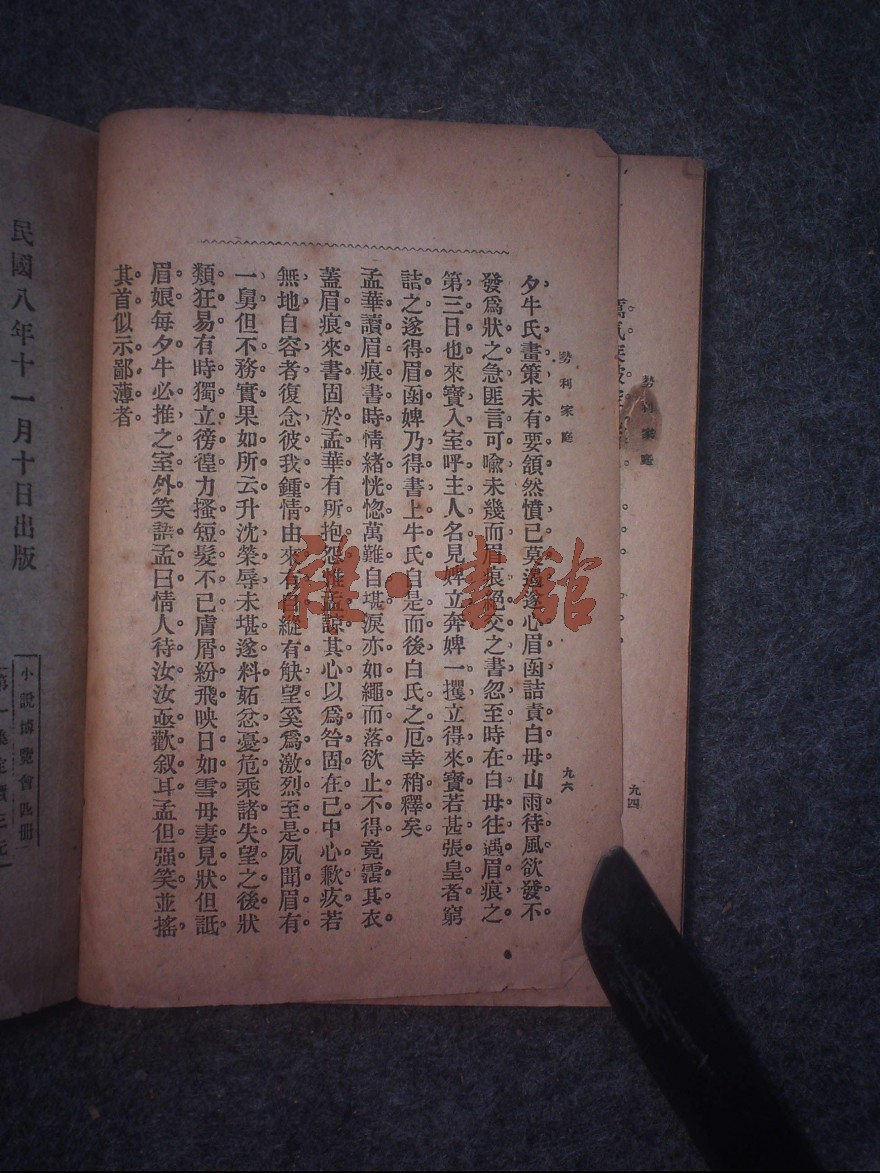 勢利家庭
九六
夕牛氏畫策未有要領然憤已莫遏遂心眉函詰責白毋山雨待風欲發不
發爲狀之急匪言可喩未幾而眉痕絕交之書忽至時在白毋往遇眉痕之
第三日也來寶入室呼主人名見婢立奔婢一攫立得來寶若甚張皇者窮
詰之遂得眉函婢乃得書上牛氏自是而後白氏之厄幸稍釋矣
孟華讀眉痕書時情緒恍惚萬難自堪淚亦如繩而落欲止不得竟霑其衣
蓋眉痕來書固於孟華有所抱怨惟孟諒其心以爲咎固在已中心歉疚若
無地自容者復念彼我鍾情由來有自縱有觖望奚爲激烈至是夙聞眉有
一舅但不務實果如所云升沈榮辱未堪遂料妬忿憂危乘諸失望之後狀
類狂易有時獨立徬徨力搔短髮不已膚屑紛飛映日如雪毋妻見狀但詆
眉娘每夕牛必推之室外笑語孟曰情人待汝汝亟歡叙耳孟但强笑並搖
其首似示鄙薄者
勢利家庭
九四
民國八年十一月十日出版
小說博覽會四册
第一集定價三元
雜·書館